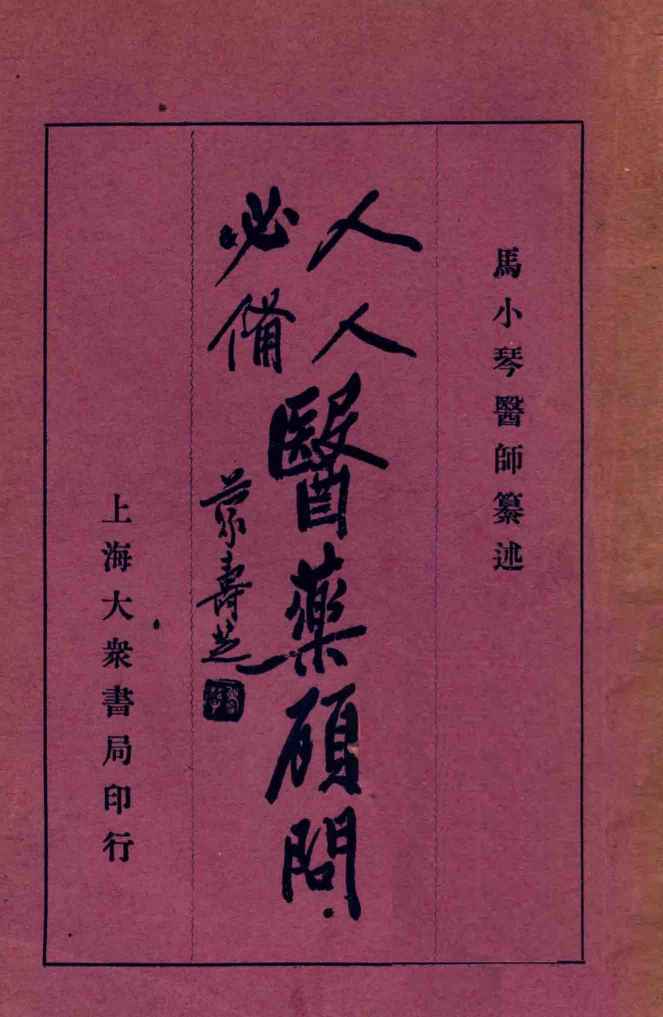 馬小琴醫師纂述
人人
必備
醫藥顧問
蔡壽芝
上海大衆書局印行